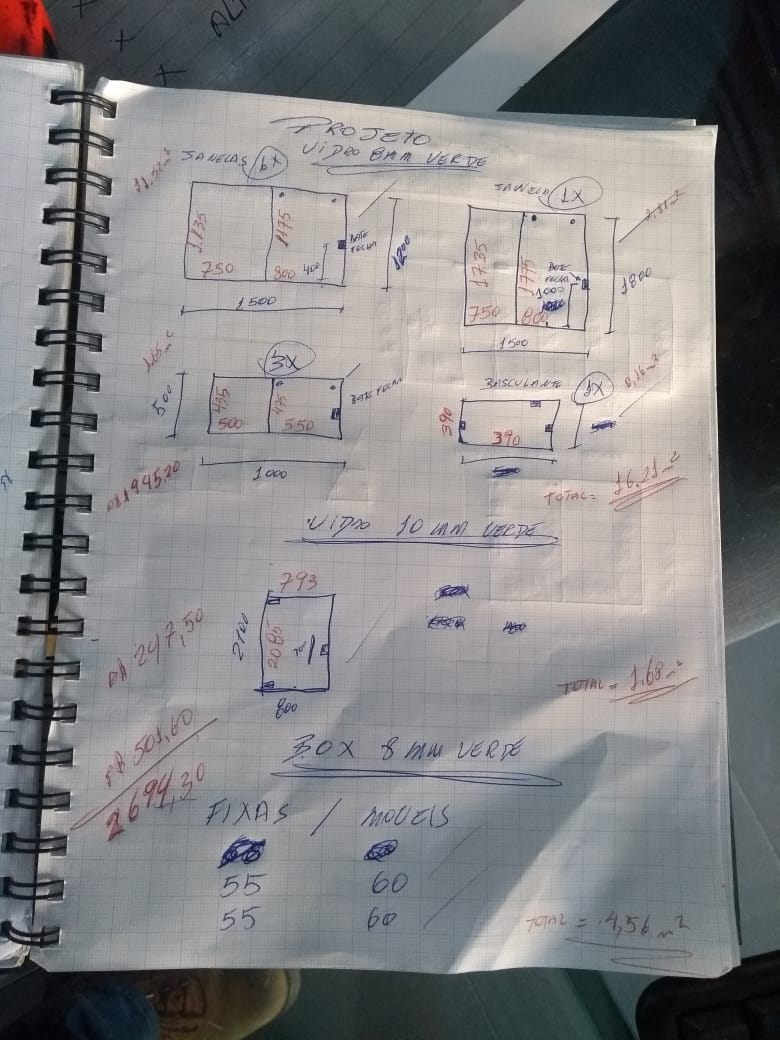 PROJETO
VIDRO 8MM VERDE
JANELAS 6X
1135
1175
750
800
400
BATE FECHA
1200
1500
JANELA 1X
1735
1775
BATE FECHA
1000
750
800
1800
1500
3X
500
435
475
500
550
BATE FECHA
1000
BASCULANTE 1X
0,16 m²
390
390
1945,20
TOTAL = 16,21 m²
VIDRO 10 MM VERDE
793
2100
2085
800
R$ 247,50
TOTAL = 1,68 m²
R$ 501,60
2694,30
BOX 8 MM VERDE
FIXAS / MOVEIS
55 60
55 60
TOTAL = 4,56 m²